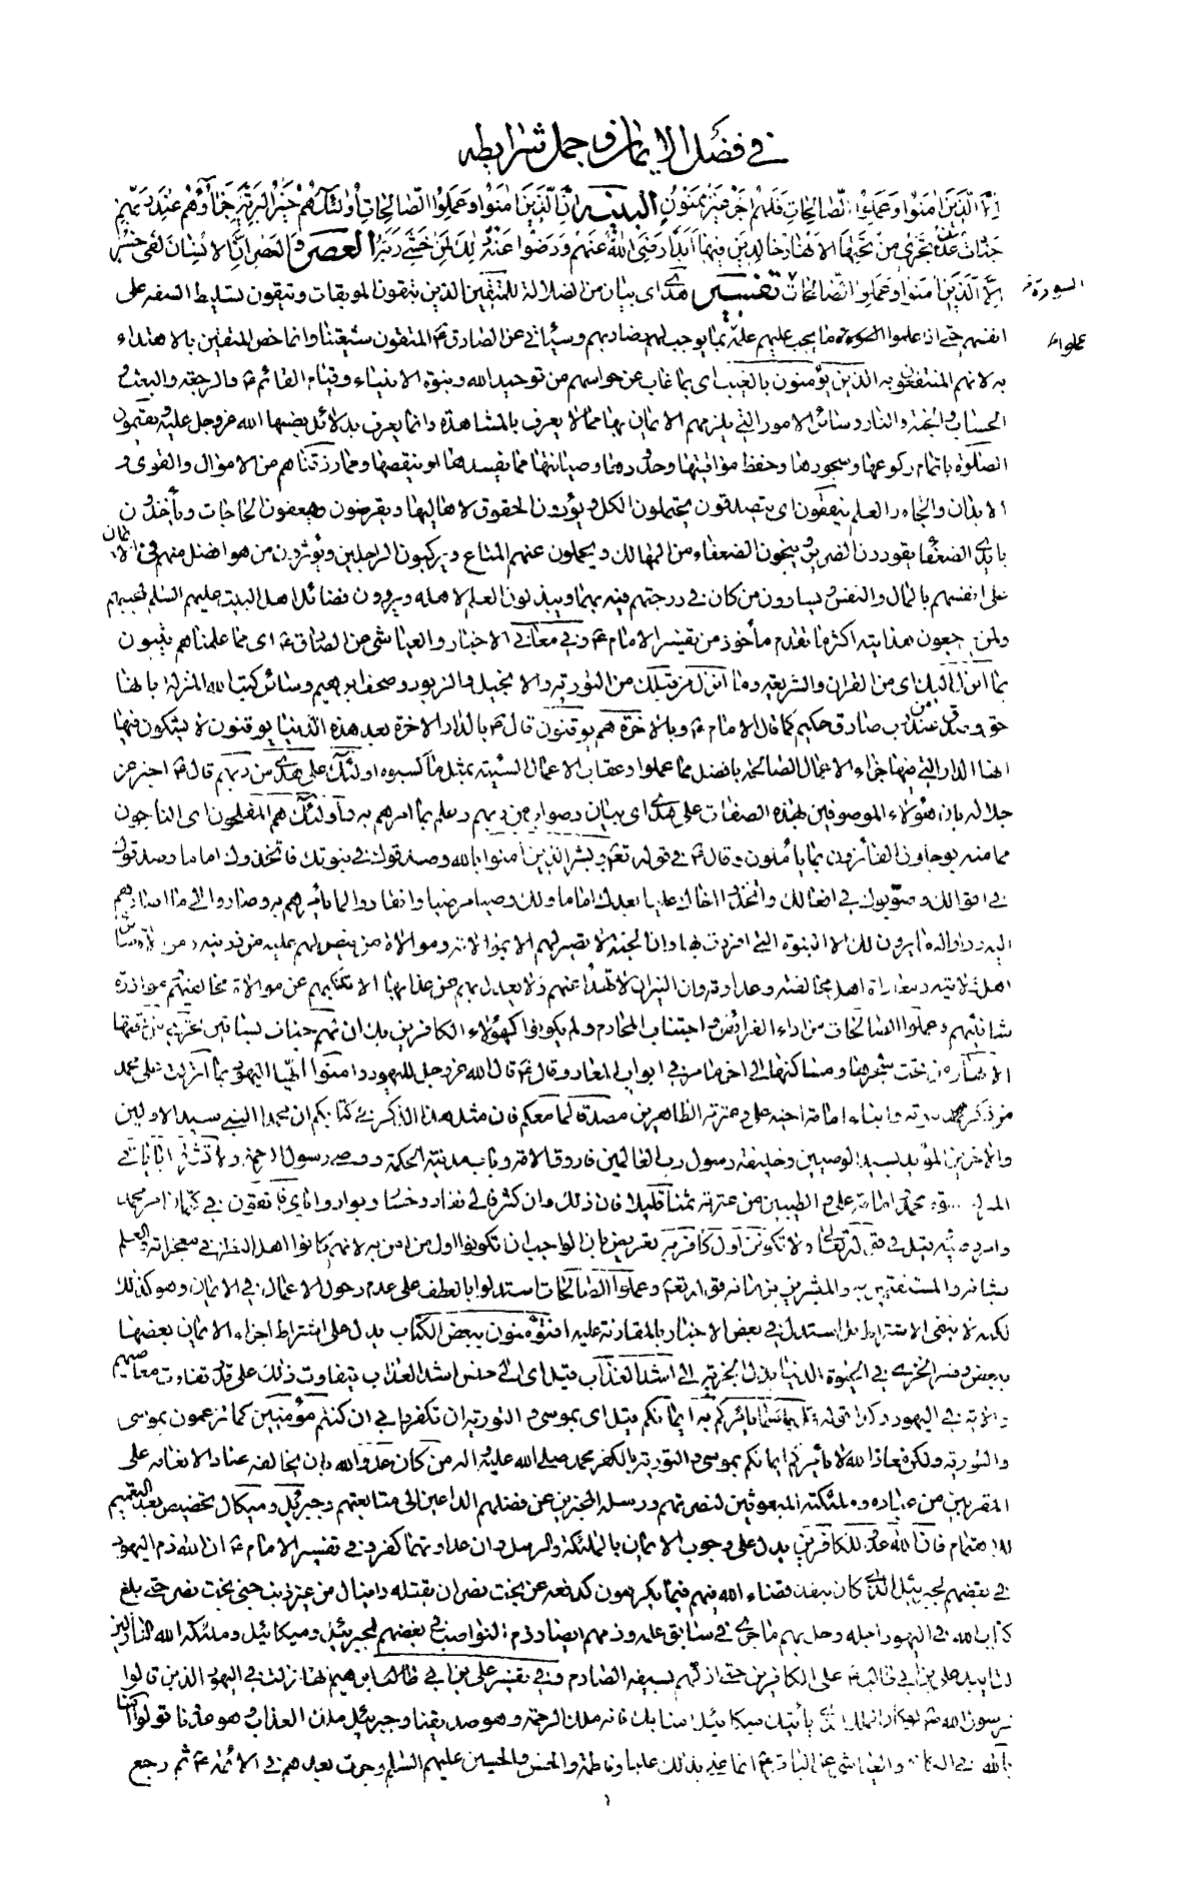 في فضل الإيمان و جمل شرايطه
إلا الذين امنوا وعملوا الصالحات فلهم اجر غير ممنون البينة ان الذين امنوا وعملوا الصالحات اولئك هم خير البرية جزاؤهم عند ربهم
جنات عدن تجري من تحتها الانهار خالدين فيها ابدا رضي الله عنهم ورضوا عنه ذلك لمن خشي ربه العصر والعصر ان الانسان لفي خسر
الا الذين امنوا وعملوا الصالحات تفسير هدى اي بيان من الضلالة للمتقين الذين يتقون الموبقات ويتقون تسليط السفه على
السورة
انفسهم حتى اذا علموا ما يجب عليهم علمه عملوا بما يوجب لهم رضا ربهم وسيأتي عن الصادق ع المتقون شيعتنا وانما خص المتقين بالاهتداء
به لانهم المنتفعون به الذين يؤمنون بالغيب اي بما غاب عن حواسهم من توحيد الله ونبوة الانبياء وقيام القائم ع والرجعة والبعث و
الحساب والجنة والنار وسائر الامور التي يلزمهم الايمان بها مما لا يعرف بالمشاهدة وانما يعرف بدلائل نصبها الله عز وجل عليه ويقيمون
الصلوة باتمام ركوعها وسجودها وحفظ مواقيتها وحدودها وصيانتها مما يفسدها او ينقصها ومما رزقناهم من الاموال والقوى و
الابدان والجاه والعلم ينفقون اي يتصدقون يحتملون الكل ويؤدون الحقوق لاهاليها ويقرضون ويسعفون الحاجات ويأخذون
بايدي الضعفاء يقودون الضرير وينجون الضعفاء من المهالك ويحملون عنهم المتاع ويركبون الراجلين ويؤثرون من هو افضل منهم في الايمان
على انفسهم بالمال والنفس ويساوون من كان في درجتهم فيه بهما ويبذلون العلم لاهله ويروون فضائل اهل البيت عليهم السلم لمحبيهم
ولمن يرجون هدايته اكثر ما تقدم مأخوذ من تفسير الامام ع وفي معاني الاخبار والعياشي عن الصادق ع اي مما علمناهم يبثون
بما انزل اليك اي من القران والشريعة وما انزل من قبلك من التورية والانجيل والزبور وصحف ابرهيم وسائر كتب الله المنزلة بانها
حق وصدق من عند رب صادق حكيم كما قال الامام ع وبالاخرة هم يوقنون قال ع بالدار الاخرة بعد هذه الدنيا يوقنون لا يشكون فيها
انها الدار التي فيها جزاء الاعمال الصالحة بافضل مما عملوا وعقاب الاعمال السيئة بمثل ما كسبوه اولئك على هدى من ربهم قال ع اخبر عن
جلاله بان هؤلاء الموصوفين بهذه الصفات على هدى اي بيان وصواب من ربهم وعلم بما امرهم به واولئك هم المفلحون اي الناجون
مما منه يوجلون الفائزون بما يأملون وقال ع في قوله تع وبشر الذين امنوا بالله وصدقوك في نبوتك فاتخذوك اماما وصدقوك
في اقوالك وصوبوك في افعالك واتخذوا اخاك عليا بعدك اماما ولك وصيا مرضيا وانقادوا لما يأمرهم به وصاروا الى ما اصارهم
اليه ورأوا له ما يرون لك الا النبوة التي افردت بها وان الجنة لا تصير لهم الا بموالاته وموالاة من ينص لهم عليه من ذريته
اهل ولايته ومعاداة اهل مخالفته وعداوته وان النيران لا تهدأ عنهم ولا يعدل بهم عن عذابها الا بتنكبهم عن موالاة مخالفيهم وموازرة
شانئيهم وعملوا الصالحات من اداء الفرائض واجتناب المحارم ولم يكونوا كهؤلاء الكافرين بك ان لهم جنات بساتين تجري من تحتها
الانهار من تحت شجرها ومساكنها الى اخر ما مر في ابواب المعاد وقال ع قال الله عز وجل لليهود وامنوا ايها اليهود بما انزلت على محمد
من ذكر نبوته وانباء امامة اخيه علي وعترته الطاهرين مصدقا لما معكم فان مثل هذا الذكر في كتابكم ان محمدا النبي سيد الاولين
والاخرين المؤيد بسيد الوصيين وخليفة رسول رب العالمين فاروق الامة وباب مدينة الحكمة ووصي رسول الرحمة ولا تشتروا باياتي
محمد وامامة علي والطيبين من عترته ثمنا قليلا فان ذلك وان كثر فالى نفاد وخسار وبوار واياي فاتقون في كتمان امر محمد
وامر وصيه قيل في قوله تعالى ولا تكونوا اول كافر به تعريض بان الواجب ان تكونوا اول من امن به لانهم كانوا اهل النظر في معجزاته والعلم
بشانه والمستفتحين به والمبشرين بزمانه قوله تع وعملوا الصالحات استدلوا بالعطف على عدم دخول الاعمال في الايمان وهو كذلك
لكنه لا ينفي الاشتراط بل استدل في بعض الاخبار بالمقارنة عليه افتؤمنون ببعض الكتاب يدل على اشتراط اجزاء الايمان بعضها
ببعض وفسر الخزي في الحيوة الدنيا بذل الجزية الى اشد العذاب قيل اي الى جنس اشد العذاب يتفاوت ذلك على قدر تفاوت معاصيهم
والاية في اليهود وكذا قوله قل بئسما يأمركم به ايمانكم قيل اي بموسى والتورية ان تكفروا بي ان كنتم مؤمنين كما تزعمون بموسى
والتورية ولكن معاذ الله لا يأمركم ايمانكم بموسى والتورية بالكفر بمحمد صلى الله عليه واله من كان عدوا لله بان يخالفه عنادا لانعامه على
المقربين من عباده وملئكته المبعوثين لنصرتهم ورسله المخبرين عن فضلهم الداعين الى متابعتهم وجبرئيل وميكال تخصيص بعد التعميم
للاهتمام فان الله عدو للكافرين يدل على وجوب الايمان بالملئكة والرسل وان عداوتهم كفر وفي تفسير الامام ع ان الله ذم اليهود
في بغضهم لجبرئيل الذي كان ينفذ قضاء الله فيهم فيما يكرهون كدفعه عن بخت نصر ان يقتله دانيال من غير ذنب جنى بخت نصر حتى بلغ
كتاب الله في اليهود اجله وحل بهم ما جرى في سابق علمه وذمهم ايضا وذم النواصب في بغضهم لجبرئيل وميكائيل وملئكة الله النازلين
لتاييد علي بن ابي طالب ع على الكافرين حتى اذلهم بسيفه الصارم وفي تفسير علي بن ابرهيم انها نزلت في اليهود الذين قالوا
لرسول الله ص لو كان الملك الذي يأتيك ميكائيل امنا بك فانه ملك الرحمة وهو صديقنا وجبرئيل ملك العذاب وهو عدونا قولوا امنا
بالله في الكافي والعياشي عن الباقر ع انما عنى بذلك عليا وفاطمة والحسن والحسين عليهم السلم وجرت بعدهم في الائمة ع ثم رجع